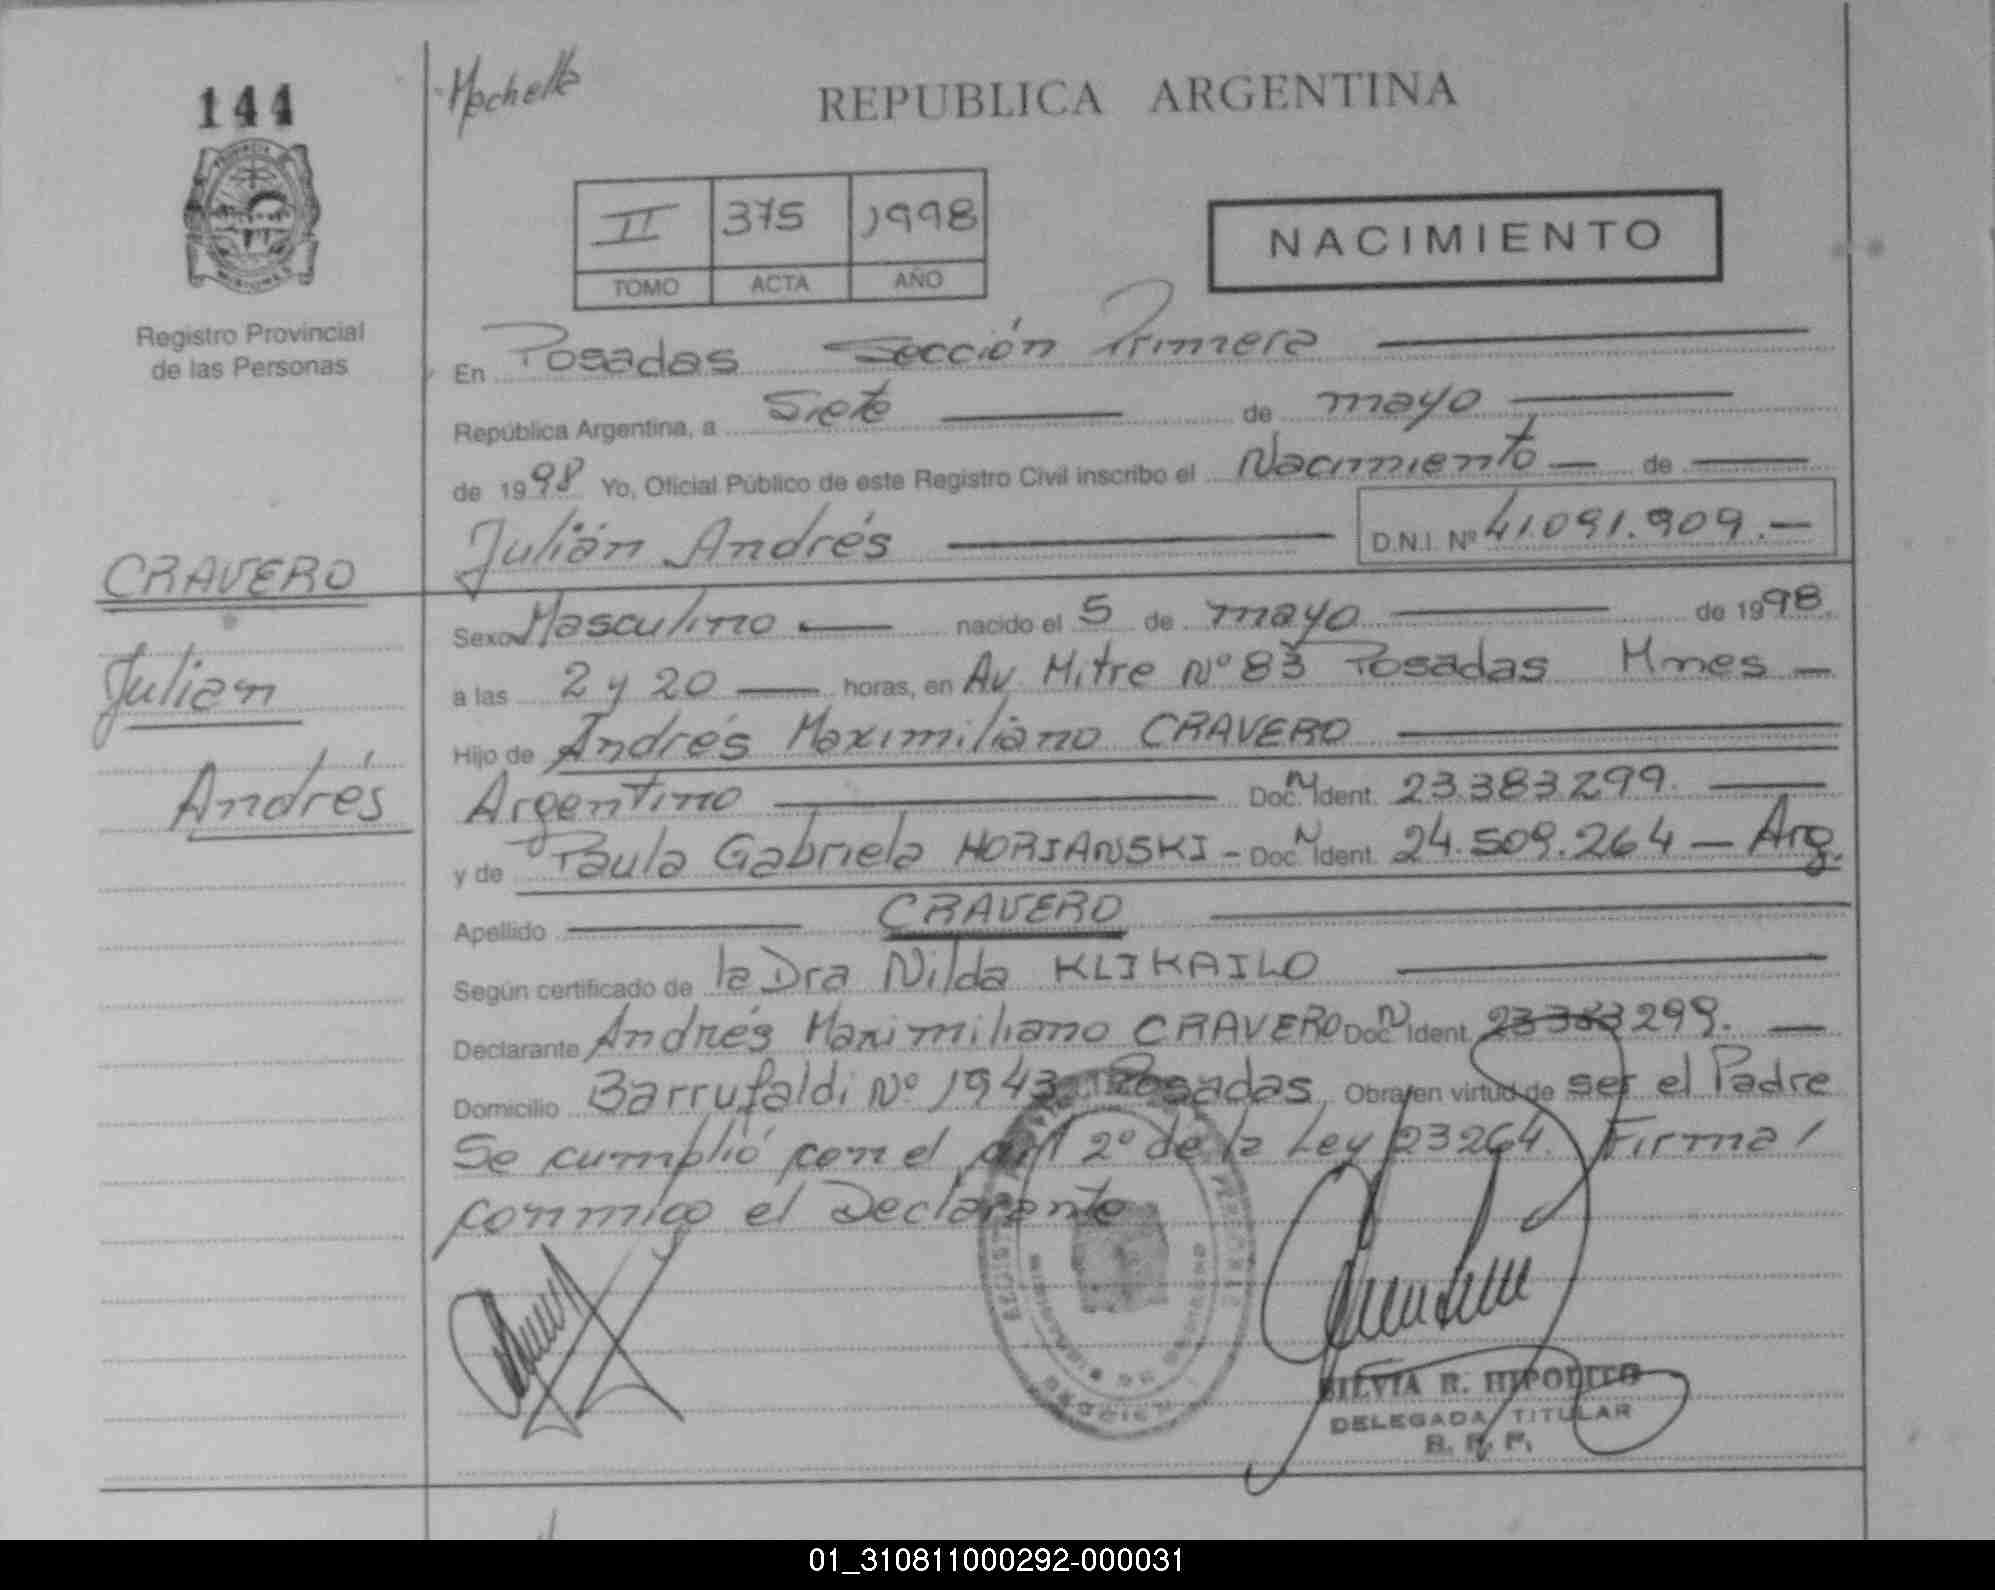 144
Registro Provincial
de las Personas
CRAVERO
Julián
Andrés
REPUBLICA ARGENTINA
II 375 1998
TOMO ACTA AÑO
NACIMIENTO
En Posadas Sección Primera
República Argentina, a Siete de mayo
de 1998 Yo, Oficial Público de este Registro Civil inscribo el Nacimiento de
Julián Andrés D.N.I. Nº 41.091.909.-
Sexo Masculino nacido el 5 de mayo de 1998.
a las 2 y 20 horas, en Av. Mitre Nº 83 Posadas Mnes
Hijo de Andrés Maximiliano CRAVERO
Argentino Doc. N Ident. 23.383.299.
y de Paula Gabriela MORIANSKI - Doc. N Ident. 24.509.264 - Arg.
Apellido CRAVERO
Según certificado de la Dra Nilda KLIKAILO
Declarante Andrés Maximiliano CRAVERO Doc. N Ident. 23383299.
Domicilio Barrufaldi Nº 1943 Posadas Obra en virtud de ser el Padre
Se cumplió con el art 2º de la Ley 23264. Firma
conmigo el Declarante
SILVIA R. HIPOLITO
DELEGADA TITULAR
R. P. P.
01_310811000292-000031